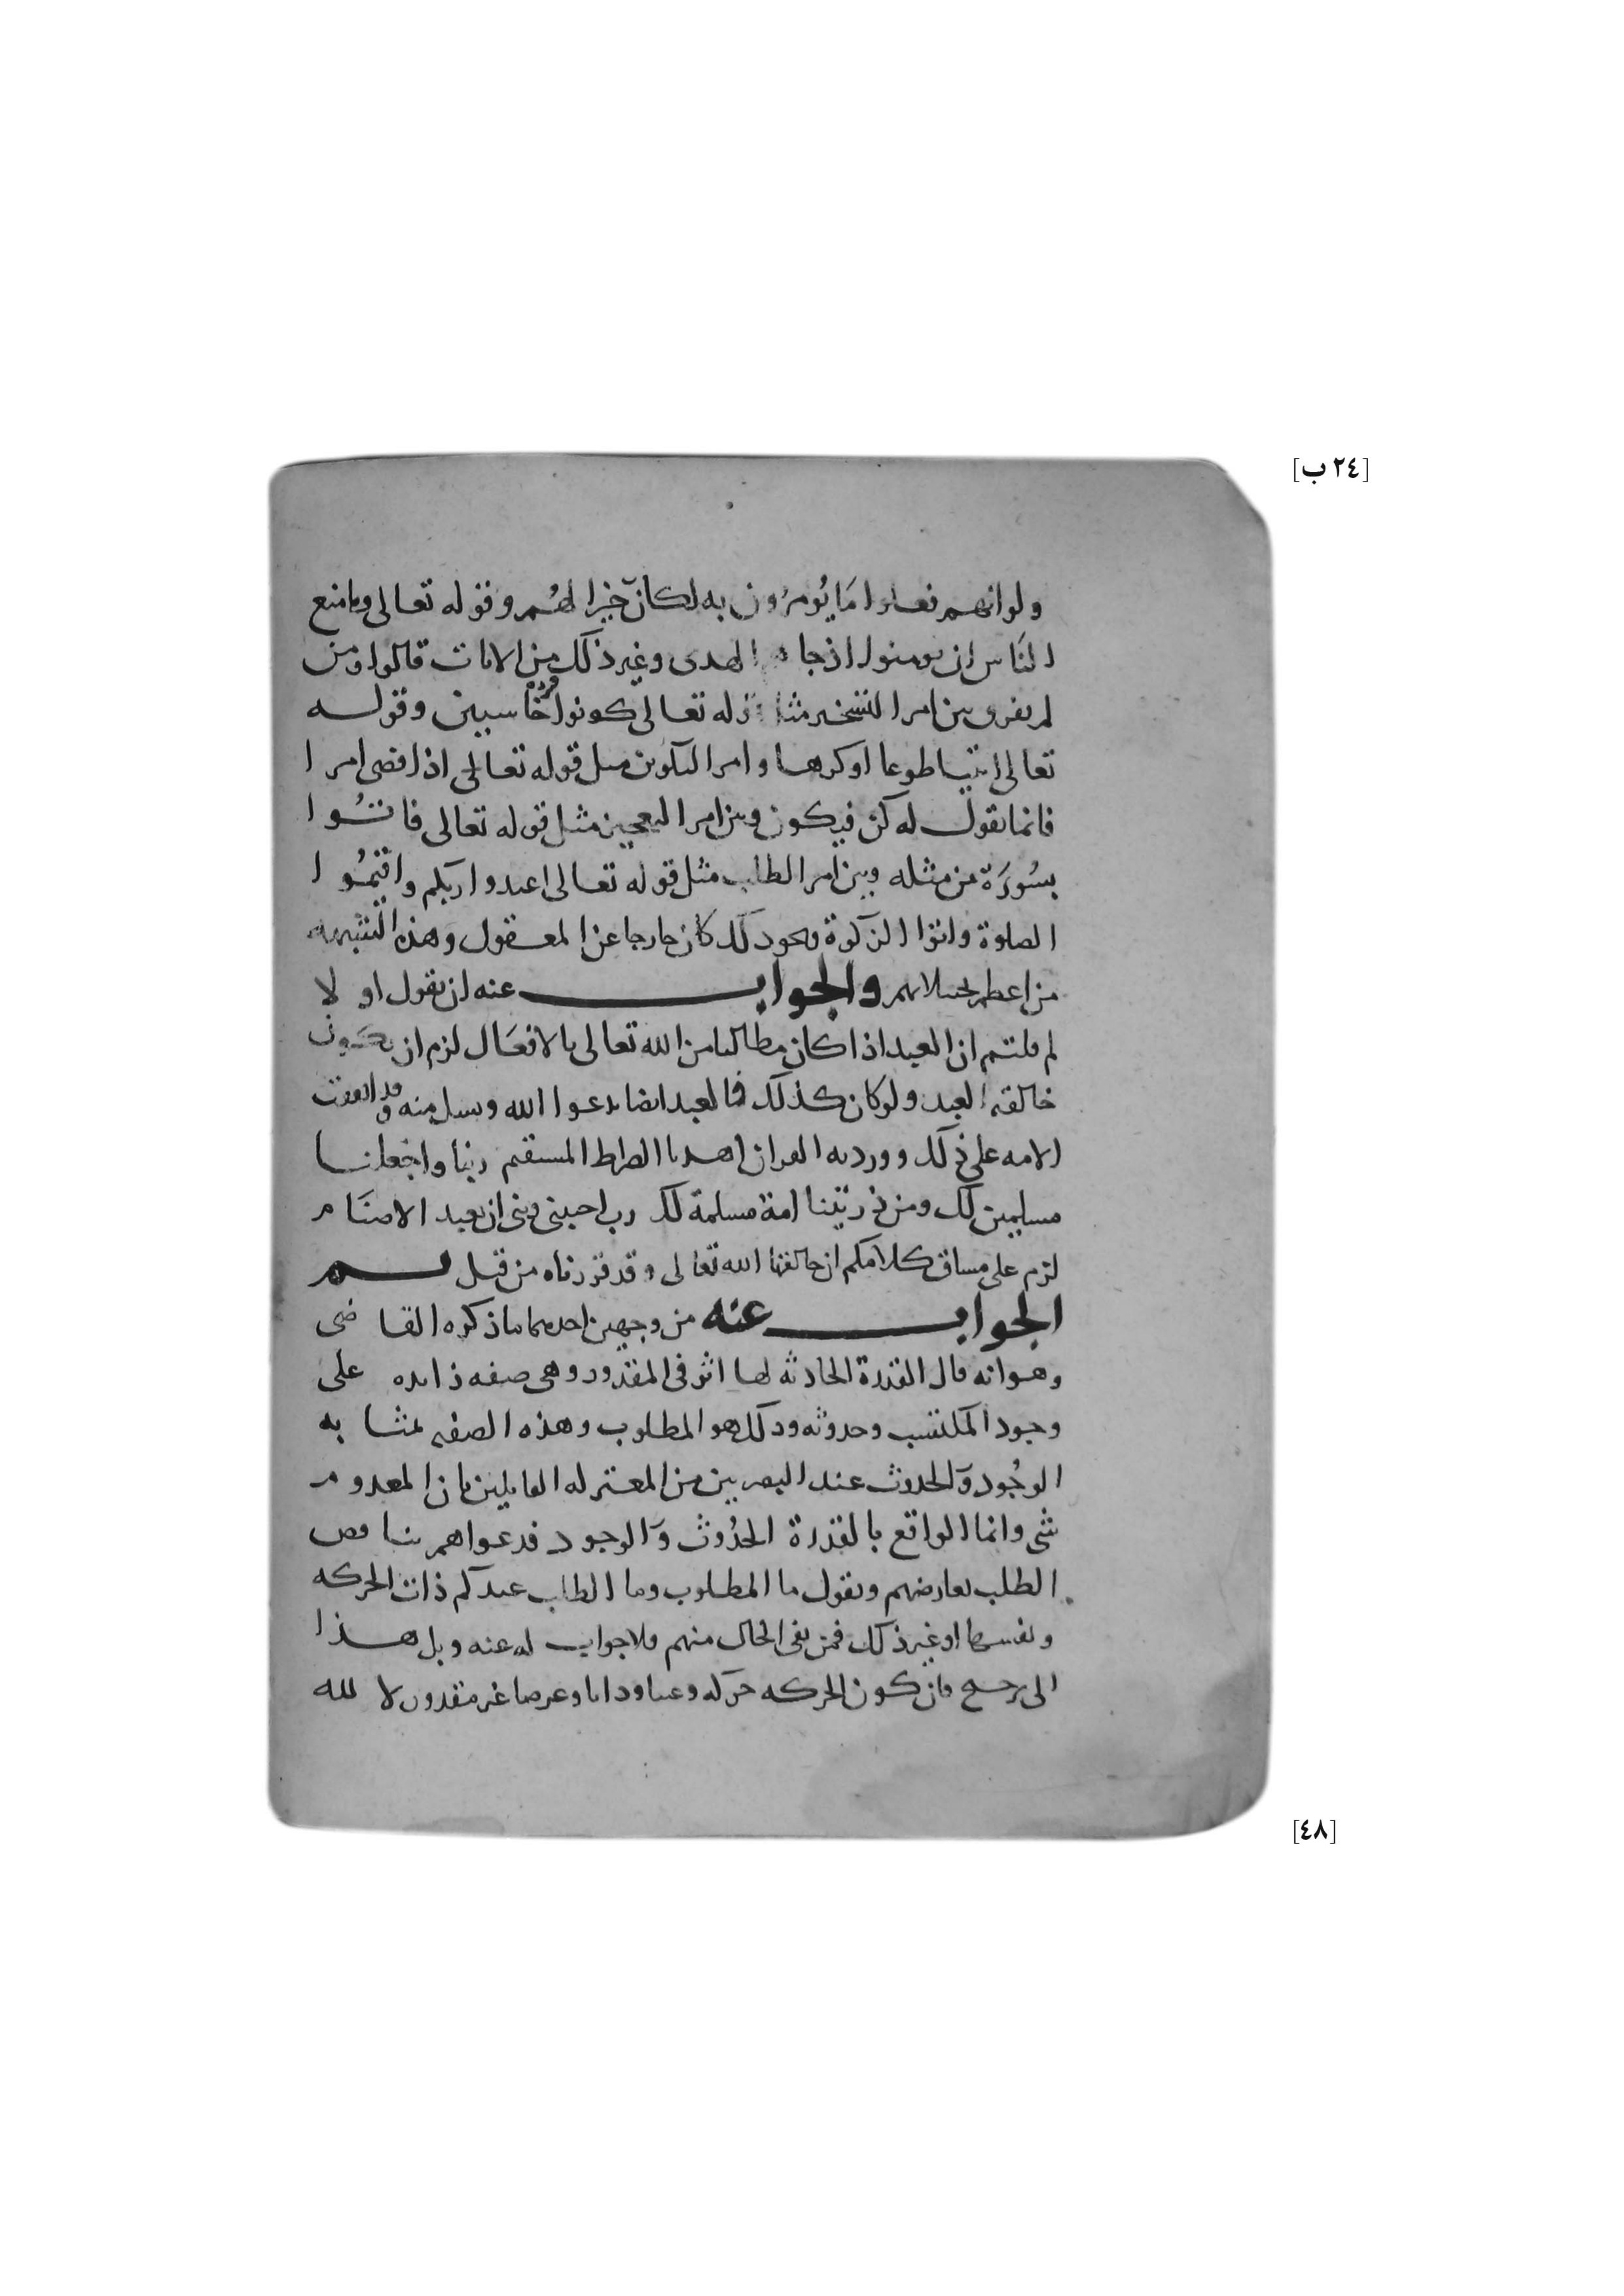 [٢٤ ب]
ولو انهم فعلوا مَا يُومرُون به لكان خيرا لهُم وقوله تعالى وما منع
النَاس ان يومنوا اذ جاهم الهدى وغير ذلك من الايات قالوا ومن
لم يفرق بين امر التسخير مثل قوله تعالى كونوا قردة خاسيين وقوله
تعالى ايتيا طوعا او كرها وامر التكوين مثل قوله تعالى اذا قضى امرا
فانما يقول له كن فيكون وبين امر التعجيز مثل قوله تعالى فاتُوا
بسُورَة من مثله وبين امر الطلب مثل قوله تعالى اعبدوا ربكم واقيمُوا
الصلوة واتوا الزكوة ونحو ذلك كان خارجا عن المعقول وهذه الشبهه
من اعظم والجواب عنه ان نقول اولا
لم قلتم ان العبد اذا كان مطالبا من الله تعالى بالافعَال لزم ان يكون
خالقه العبد ولو كان كذلك فالعبد ايضا يدعوا الله ويسل منه وقد اتفقت
الامه على ذلك وورد به القران اهدنا الصراط المستقيم ربنا واجعلنا
مسلمين لك ومن ذريتنا امة مسلمة لك رب اجنبني وبني ان نعبد الاصنَام
لزم على مساق كلامكم ان خالقها الله تعالى وقد قررناه من قبل ثم
الجواب عنه من وجهين احدهما ما ذكره القاضى
وهو انه قال القدرة الحادثه لها اثر فى المقدور وهى صفه زايده على
وجود المكتسب وحدوثه وذلك هو المطلوب وهذه الصفه بمثابه
الوجُود وَالحدوث عند البصريين من المعتزله القايلين بان المعدوم
شى وانما الواقع بالقدرة الحدُوث وَالوجود فدعواهم تناقض
الطلب نعارضهم ونقول ما المطلوب وما الطلب عندكم ذات الحركه
ونفسها او غير ذلك فمن نفى الحال منهم فلا جواب له عنه وبل هذا
الى يرجح فان كون الحركه حركه وعرضا غير مقدور لا لله
[٤٨]